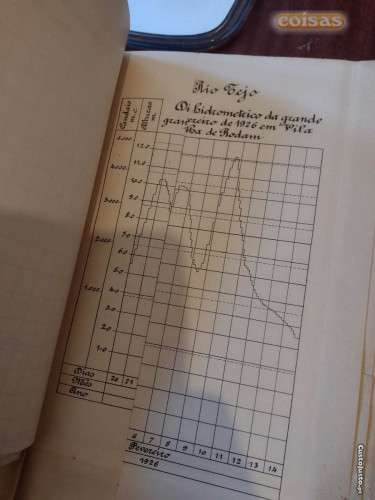 coisas
Rio Tejo
Di hidrometico da grande
de 1926 em Vila
Wa de Rodam
Caudais
m.c.
Alturas
m.
5.000
12.0
11.0
4.000
10.0
9.0
3.000
8.0
7.0
2.000
6.0
5.0
4.0
1.000
3.0
2.0
1.0
Dias 20 21
Mês
Ano
6 7 8 9 10 11 12 13 14
Fevereiro
1926
CustoJusto.pt